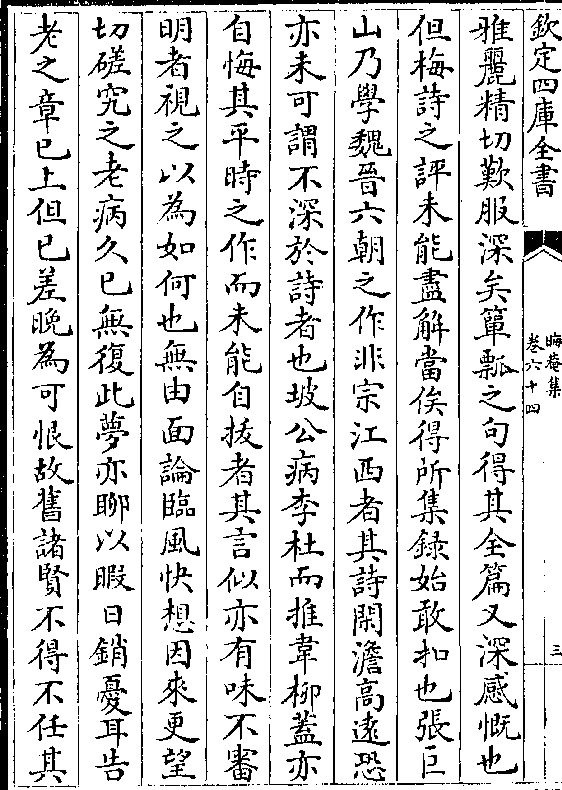 欽定四庫全書
晦菴集
卷六十四
三
雅麗精切歎服深矣簞瓢之句得其全篇又深感慨也
但梅詩之評未能盡解當俟得所集録始敢扣也張巨
山乃學魏晉六朝之作非宗江西者其詩閑澹高逺恐
亦未可謂不深於詩者也坡公病李杜而推韋柳蓋亦
自悔其平時之作而未能自拔者其言似亦有味不審
明者視之以為如何也無由面論臨風快想因來更望
切磋究之老病久已無復此夢亦聊以暇日銷憂耳告
老之章已上但已差晚為可恨故舊諸賢不得不任其